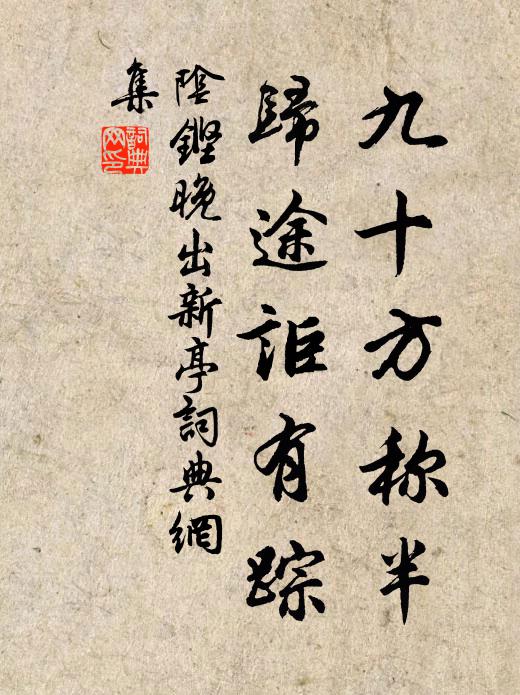 九十方称半
歸途詎有踪
陰鏗晚出新亭詞典網
集
詞典网印